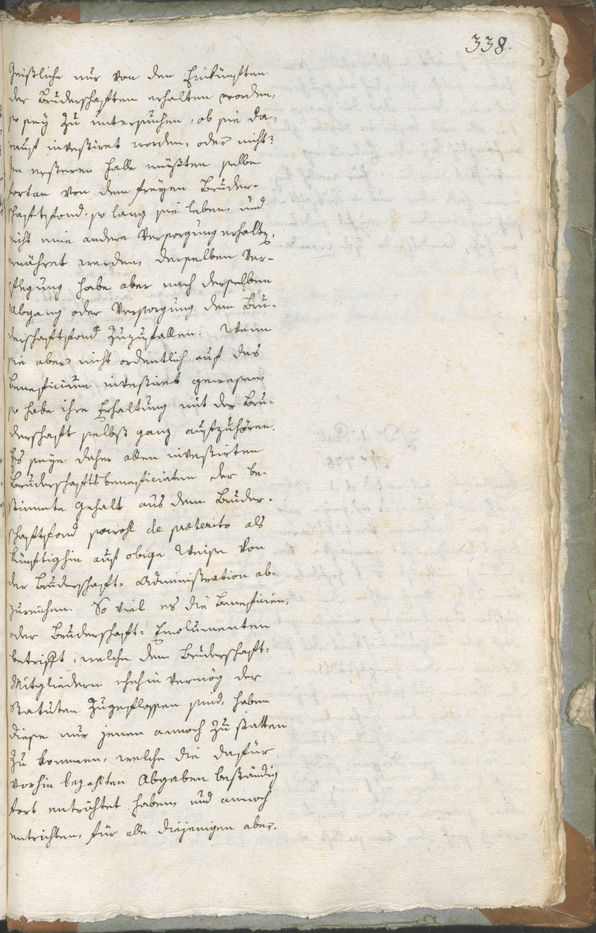 338.
Geistliche nur von den Einkünften
der Bruderschaften erhalten worden,
so seÿ zu untersuchen, ob sie da-
rauf investiret worden, oder nicht?
Im ersteren falle müßten selbe
fortan von dem freÿen Bruder-
schaftsfond, so lang sie leben, und
nicht eine andere Versorgung erhalten,
ernähret werden, derselben Ver-
pflegung habe aber nach derselben
Abgang oder Versorgung dem Bru-
derschaftsfond zuzufallen. Wenn
sie aber nicht ordentlich auf das
Beneficium investiret gewesen,
so habe ihre Erhaltung mit der Bru-
derschaft selbst ganz aufzuhören.
Es seÿe daher allen investirten
Bruderschaftsbeneficiaten der be-
stimmte Gehalt aus dem Bruder-
schaftsfond sowohl de praeterito als
künftighin auf obige Weise von
der Bruderschaft-Administration ab-
zureichen. So viel es die Beneficien,
oder Bruderschaft-Emolumenten
betrift, welche den Bruderschaft-
Mitgliedern ehehin vermög der
Statuten zugeflossen sind, haben
diese nur jenen annoch zu statten
zu kommen, welche die dafür
vorhin bezahlten Abgaben beständig
fort entrichtet haben, und annoch
entrichten, für alle diejenigen aber